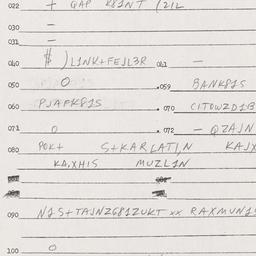 022 + GAP K81NT (21L
030 —
031 —
040 $ )L1NK+FEJL3R 041 —
050 O .059 BANK81S
060 PJAFK81S . 070 CITOWZD1B
071 O . 072 — QZAJN
080 POK+ S+KARLATI,N KAJX
KA,XHIS MUZL1N
090 N1S+TAJNZG81ZUKT xx RAXMUN1S
100 O